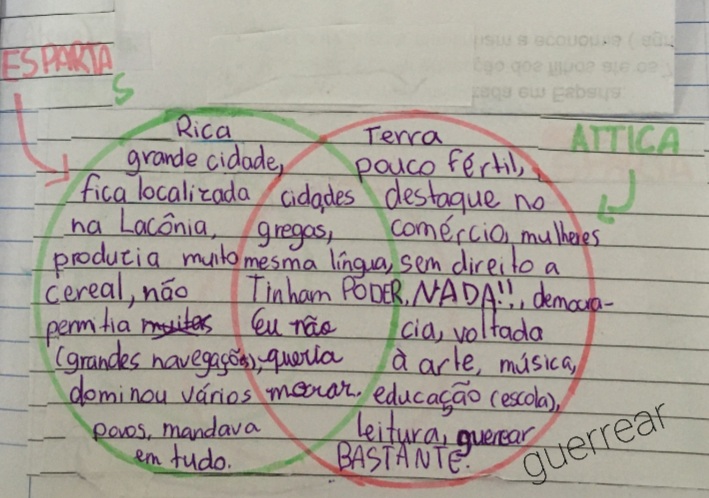 ESPARTA
S
ATTICA
Rica
grande cidade,
fica localizada
na Lacônia,
produzia muito
cereal, não
permitia muitas
(grandes navegações),
dominou vários
povos, mandava
em tudo.
cidades
gregas,
mesma língua,
Tinham PODER,
Eu não
queria
morar.
Terra
pouco fértil,
destaque no
comércio, mulheres
sem direito a
NADA!!, democra-
cia, voltada
à arte, música,
educação (escola),
leitura, guerrear
BASTANTE.
guerrear